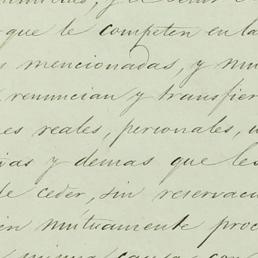 y
que te competen en la
mencionadas, y
renuncian y transfier
es reales, personales, u
ivas y demas que les
de ceder, sin reservac
en mutuamente pro